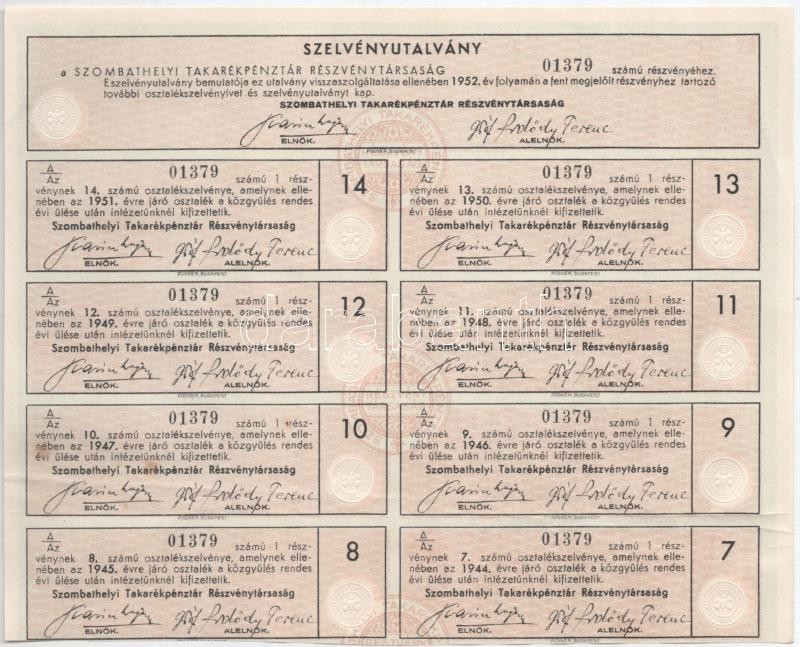 SZELVÉNYUTALVÁNY
a SZOMBATHELYI TAKARÉKPÉNZTÁR RÉSZVÉNYTÁRSASÁG 01379 számú részvényéhez.
E szelvényutalvány bemutatója ez utalvány visszaszolgáltatása ellenében 1952. év folyamán a fent megjelölt részvényhez tartozó
további osztalékszelvényívet és szelvényutalványt kap.
SZOMBATHELYI TAKARÉKPÉNZTÁR RÉSZVÉNYTÁRSASÁG
gróf Erdődy Ferenc
ELNÖK. ALELNÖK.
POSNER, BUDAPEST
A/Az 01379 számú 1 rész- 14
vénynek 14. számú osztalékszelvénye, amelynek elle-
nében az 1951. évre járó osztalék a közgyülés rendes
évi ülése után intézetünknél kifizettetik.
Szombathelyi Takarékpénztár Részvénytársaság
gróf Erdődy Ferenc
ELNÖK. ALELNÖK.
POSNER, BUDAPEST
A/Az 01379 számú 1 rész- 13
vénynek 13. számú osztalékszelvénye, amelynek elle-
nében az 1950. évre járó osztalék a közgyülés rendes
évi ülése után intézetünknél kifizettetik.
Szombathelyi Takarékpénztár Részvénytársaság
gróf Erdődy Ferenc
ELNÖK. ALELNÖK.
POSNER, BUDAPEST
A/Az 01379 számú 1 rész- 12
vénynek 12. számú osztalékszelvénye, amelynek elle-
nében az 1949. évre járó osztalék a közgyülés rendes
évi ülése után intézetünknél kifizettetik.
Szombathelyi Takarékpénztár Részvénytársaság
gróf Erdődy Ferenc
ELNÖK. ALELNÖK.
POSNER, BUDAPEST
A/Az 01379 számú 1 rész- 11
vénynek 11. számú osztalékszelvénye, amelynek elle-
nében az 1948. évre járó osztalék a közgyülés rendes
évi ülése után intézetünknél kifizettetik.
Szombathelyi Takarékpénztár Részvénytársaság
gróf Erdődy Ferenc
ELNÖK. ALELNÖK.
POSNER, BUDAPEST
darabanth
A/Az 01379 számú 1 rész- 10
vénynek 10. számú osztalékszelvénye, amelynek elle-
nében az 1947. évre járó osztalék a közgyülés rendes
évi ülése után intézetünknél kifizettetik.
Szombathelyi Takarékpénztár Részvénytársaság
gróf Erdődy Ferenc
ELNÖK. ALELNÖK.
POSNER, BUDAPEST
A/Az 01379 számú 1 rész- 9
vénynek 9. számú osztalékszelvénye, amelynek elle-
nében az 1946. évre járó osztalék a közgyülés rendes
évi ülése után intézetünknél kifizettetik.
Szombathelyi Takarékpénztár Részvénytársaság
gróf Erdődy Ferenc
ELNÖK. ALELNÖK.
POSNER, BUDAPEST
A/Az 01379 számú 1 rész- 8
vénynek 8. számú osztalékszelvénye, amelynek elle-
nében az 1945. évre járó osztalék a közgyülés rendes
évi ülése után intézetünknél kifizettetik.
Szombathelyi Takarékpénztár Részvénytársaság
gróf Erdődy Ferenc
ELNÖK. ALELNÖK.
A/Az 01379 számú 1 rész- 7
vénynek 7. számú osztalékszelvénye, amelynek elle-
nében az 1944. évre járó osztalék a közgyülés rendes
évi ülése után intézetünknél kifizettetik.
Szombathelyi Takarékpénztár Részvénytársaság
gróf Erdődy Ferenc
ELNÖK. ALELNÖK.